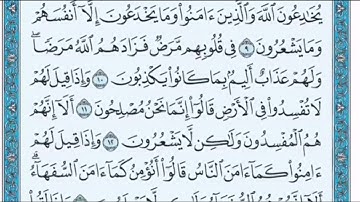 يُخَٰدِعُونَ ٱللَّهَ وَٱلَّذِينَ ءَامَنُوا۟ وَمَا يَخْدَعُونَ إِلَّآ أَنفُسَهُمْ
وَمَا يَشْعُرُونَ ٩ فِى قُلُوبِهِم مَّرَضٌ فَزَادَهُمُ ٱللَّهُ مَرَضًا ۖ
وَلَهُمْ عَذَابٌ أَلِيمٌۢ بِمَا كَانُوا۟ يَكْذِبُونَ ١٠ وَإِذَا قِيلَ لَهُمْ
لَا تُفْسِدُوا۟ فِى ٱلْأَرْضِ قَالُوٓا۟ إِنَّمَا نَحْنُ مُصْلِحُونَ ١١ أَلَآ إِنَّهُمْ
هُمُ ٱلْمُفْسِدُونَ وَلَٰكِن لَّا يَشْعُرُونَ ١٢ وَإِذَا قِيلَ لَهُمْ
ءَامِنُوا۟ كَمَآ ءَامَنَ ٱلنَّاسُ قَالُوٓا۟ أَنُؤْمِنُ كَمَآ ءَامَنَ ٱلسُّفَهَآءُ ۗ